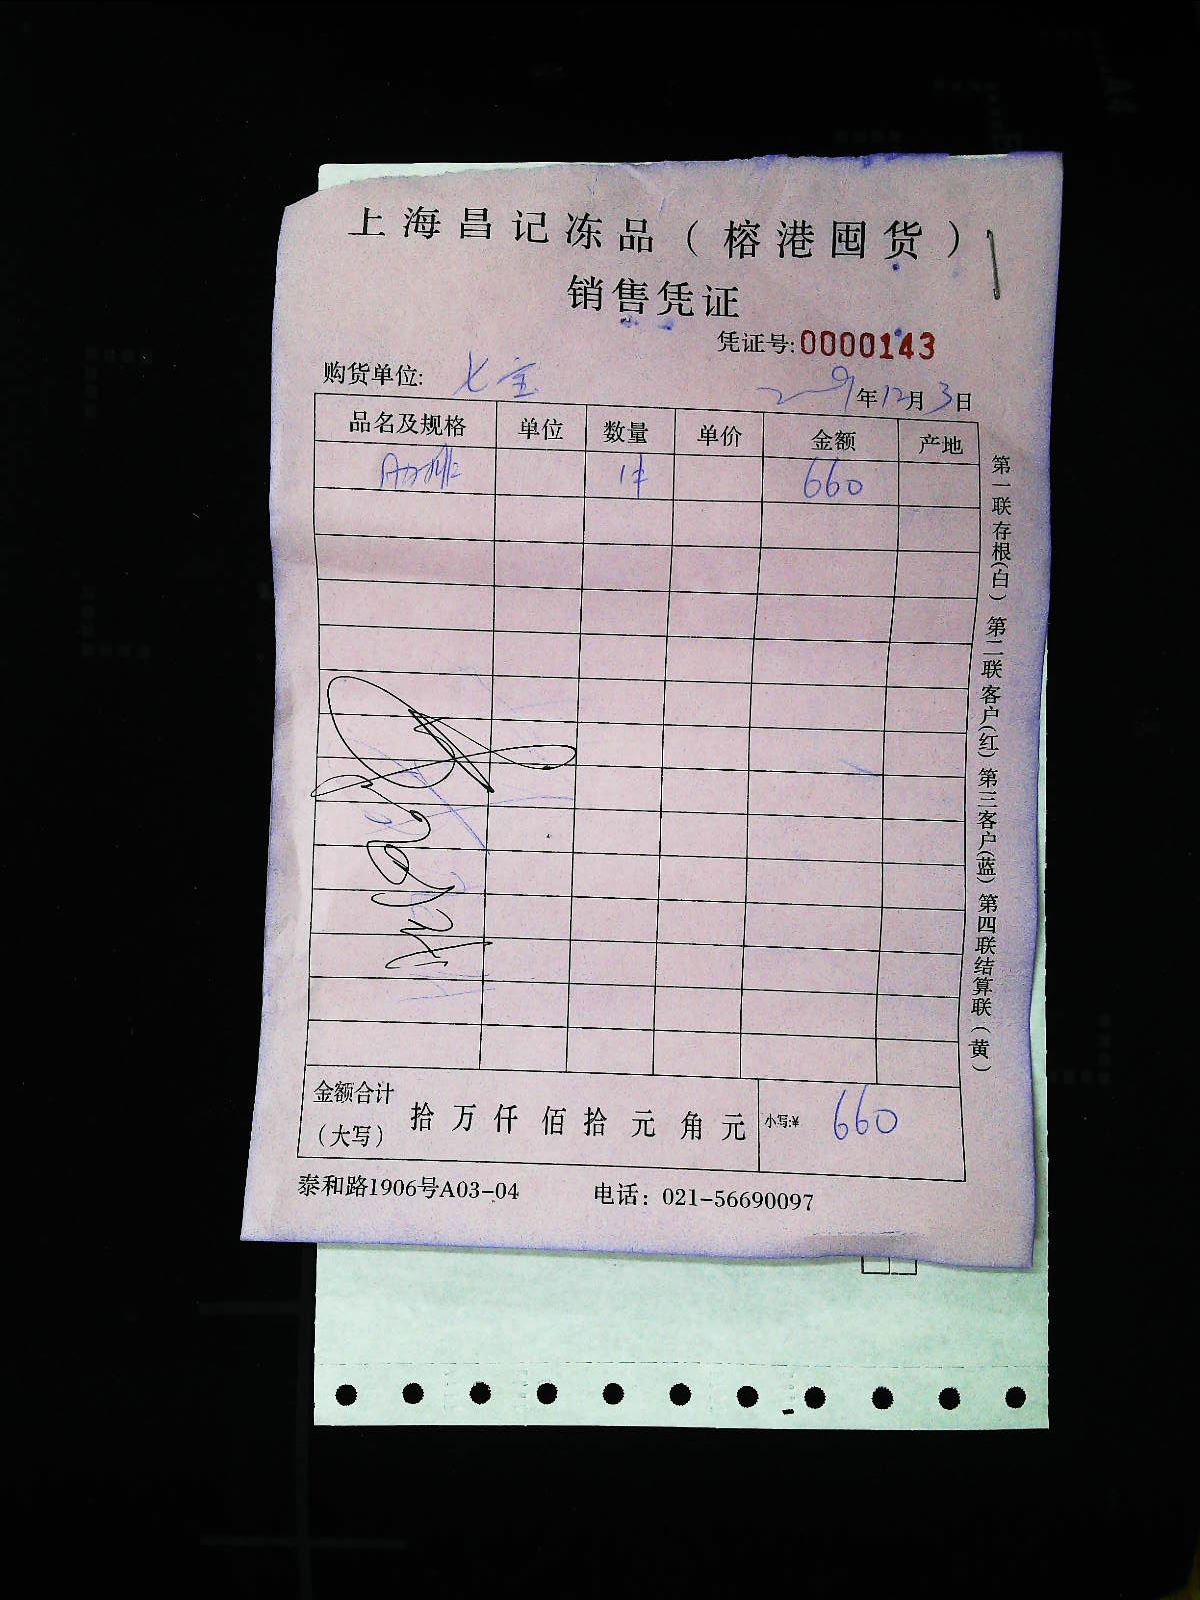 上海昌记冻品（榕港囤货）
销售凭证
凭证号:0000143
购货单位: 七宝
2019年12月3日
品名及规格 单位 数量 单价 金额 产地
1件 660
金额合计（大写） 拾万仟佰拾元角元 小写:¥ 660
泰和路1906号A03-04 电话：021-56690097
第一联存根（白）第二联客户（红）第三客户（蓝）第四联结算联（黄）